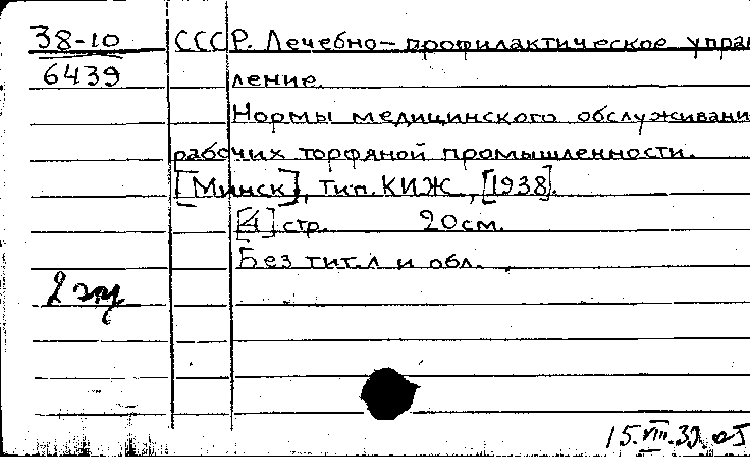 38-10
6439
СССР. Лечебно-профилактическое управ
ление.
Нормы медицинского обслуживани
рабочих торфяной промышленности.
[Минск], тип. КИЖ, [1938].
[4] стр. 20 см.
Без тит. л и обл.
2 экз
15.VIII.39.